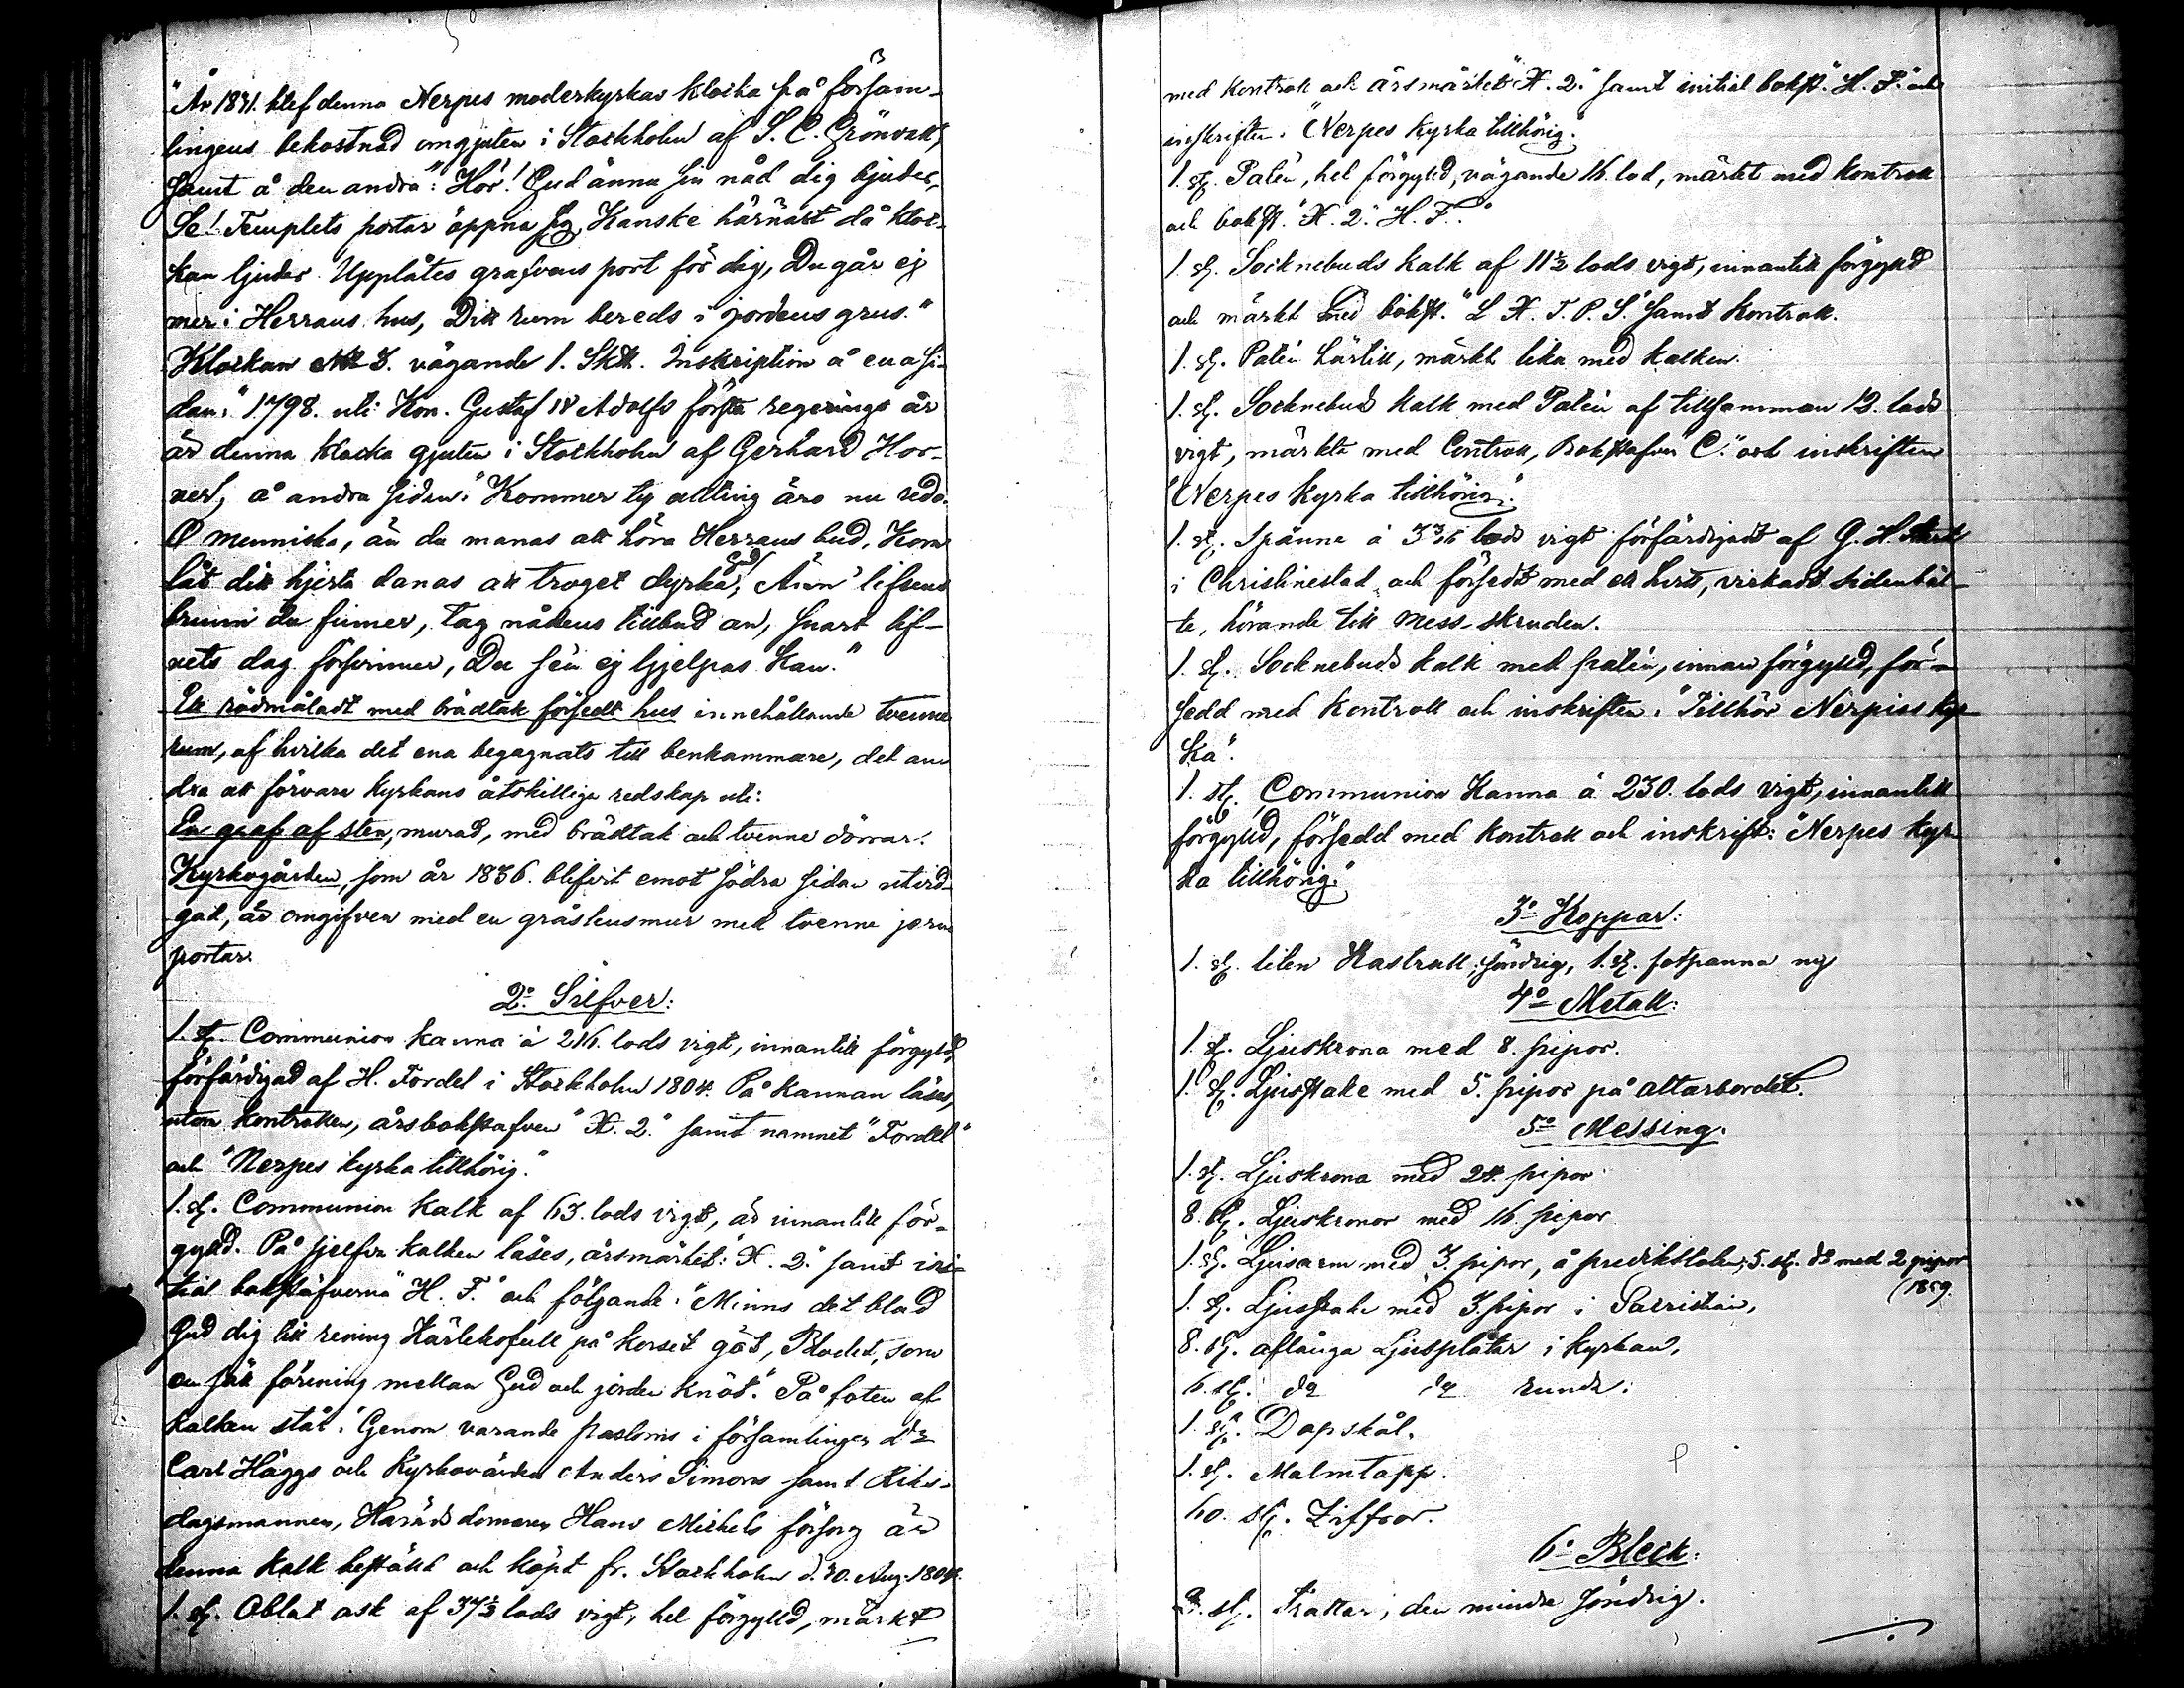 "År 1831. blef denna Nerpes moderkyrkas klocka på försam-
lingens bekostnad omgjuten i Stockholm af S. C. Grönvall,"
samt å den andra: "Hör! Gud ännu sin nåd dig bjuder,
Se! Templets portar öppna sig, Kanske härnäst då kloc-
kan ljuder Upplåtes grafvens port för dig, Du går ej
mer i Herrans hus, Ditt rum bereds i jordens grus."
Klockan No 3. vägande 1. Sk℔. Inskription å ena si-
dan: "1798. uti Kon. Gustaf IV Adolfs första regerings år
är denna klocka gjuten i Stockholm af Gerhard Hor-
ner, å andra sidan: "Kommer ty allting äro nu redo.
O menniska, än du manas att höra Herrans bud, Kom
låt ditt hjerta danas att troget dyrka Gud, Än lifsens
brunn du finner, tag nådens tillbud an, snart lif-
vets dag försvinner, Du sen ej hjelpas kan."
Ett rödmåladt med brädtak försedt hus innehållande tvenne
rum, af hvilka det ena begagnats till benkammare, det an-
dra att förvara kyrkans åtskilliga redskap uti:
En graf af sten, murad, med brädtak och tvenne dörrar.
Kyrkogården, som år 1836. blifvit emot södra sidan utvid-
gad, är omgifven med en gråstensmur med tvenne jern
portar.
2o Silfver:
1. st. Communion kanna à 216. lods vigt, innantill förgyld,
förfärdigad af H. Fordel i Stockholm 1804. På kannan läses,
utom kontrollen, årsbokstafven "X. 2." samt namnet "Fordel"
och "Nerpes kyrka tillhörig."
1. st. Communion kalk af 63. lods vigt, är innantill för-
gylld. På sjelfva kalken läses, årsmärket: "X. 2." samt ini-
tial bokstäfverna "H. F." och följande: "Minns det blod
Gud dig till rening Kärleksfull på korset göt, Blodet, som
en sån förening mellan Gud och jorden knöt." På foten af
kalken står: "Genom varande pastoris i församlingen dr
Carl Häggs och Kyrkovärden Anders Simons samt Riks-
dagsmannen, Häradsdomaren Hans Michels försorg är
denna kalk bestäld och köpt fr. Stockholm d. 30. Aug. 1804.
1. st. Oblat ask af 37½ lods vigt, hel förgylld, märkt
med kontroll och årsmärket "X. 2." samt initial bokst. "H. F." och
inskriften: "Nerpes kyrka tillhörig."
1. st. Patén, hel förgylld, vägande 16. lod, märkt med kontroll
och bokst. "X. 2." H. F."
1. st. Socknebuds kalk af 11½ lods vigt, innantill förgylld
och märkt med bokst. "L X. T. P. S." samt kontroll.
1. st. Patén härtill, märkt lika med kalken.
1. st. Socknebuds kalk med Patén af tillsamman 12. lods
vigt, märkta med Controll, Bokstafven "C." och inskriften
"Nerpes kyrka tillhörig".
1. st. Spänne à 3 3/16 lods vigt förfärdigadt af G. H.
i Christinestad och försedt med ett hvitt, virkadt sidenbäl-
te, hörande till Mess-skruden.
1. st. Socknebuds kalk med patén, innan förgylld, för-
sedd med kontroll och inskriften: "Tillhör Nerpiss kyr-
ka".
1. st. Communion Kanna à 230. lods vigt, innantill
förgylld, försedd med kontroll och inskrift: "Nerpes kyr-
ka tillhörig."
3o Koppar:
1. st. liten Kastrull, söndrig, 1. st. fotpanna ny
4o Metall:
1. st. Ljuskrona med 8. pipor.
1. st. Ljusstake med 5. pipor på altarbordet.
5o Messing.
1. st. Ljuskrona med 24. pipor
8. st. Ljuskronor med 16. pipor
1. st. Ljusarm med 3. pipor, å predikstolen; 5. st. do med 2 pipor
(1859.
1. st. Ljusstake med 3. pipor i Sacristian,
8. st. aflånga Ljusplåtar i kyrkan,
6. st. do do runda:
1. st. Dopskål.
1. st. Malmtapp.
60. st. Ziffror.
6o Bleck:
2. st. Trattar, den mindre söndrig.